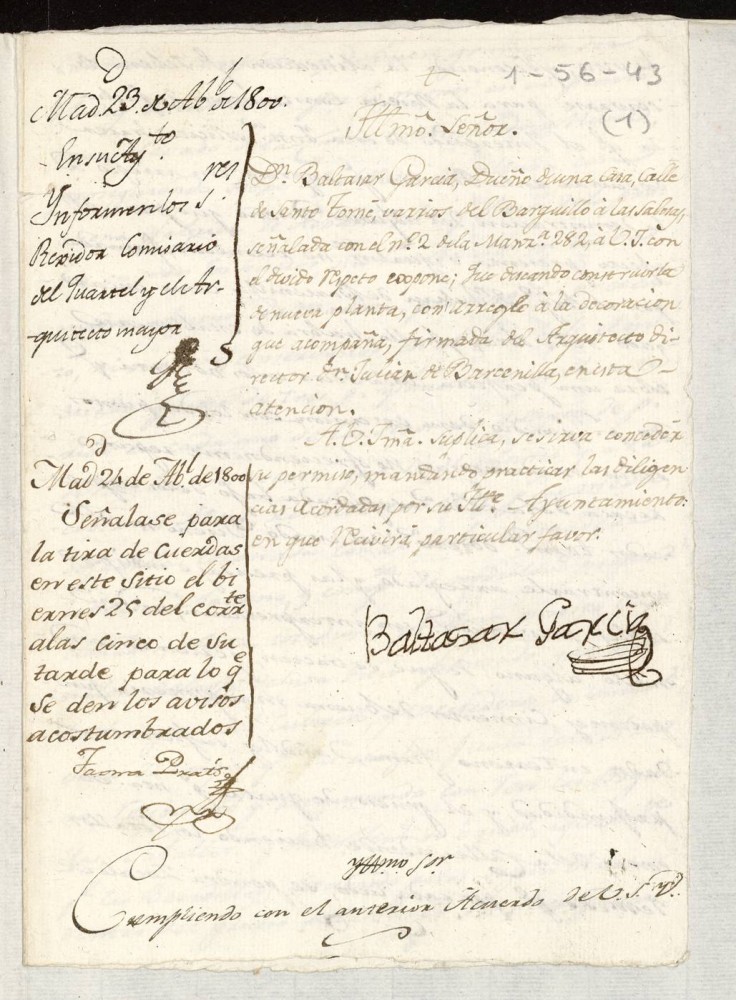 1-56-43
(1)
Madd. 23. de Abl. de 1800.
En su Ayto.
Ynformen los Sres.
Rexidor Comisario
del Quartel y el Ar-
-quitecto mayor
Madd 24 de Abl. de 1800
Señalase para
la tira de Cuerdas
en este sitio el bi
ernes 25 del corrte
a las cinco de su
tarde para lo qe
se den los avisos
acostumbrados
Yllmo. Señor.
Dn. Baltasar Garcia, Dueño de una Casa, Calle
de Santo Tomé, varrios del Barquillo à las Salesas,
señalada con el no. 2 de la Manza. 282, à V.I. con
el devido respeto expone; que deseando construirla
de nueva planta, con arreglo à la decoracion
que acompaña, firmada del Arquitecto di-
rector Dn. Julian de Barcenilla, en esta
atencion.
A V. Yma. suplica, se sirva conceder
su permiso, mandando practicar las diligen
cias acordadas por su Ylte. Ayuntamiento:
en que recivirá particular favor.
Baltasar Garcia
Yllmo Sor.
Cumpliendo con el anterior Acuerdo de V.S.Y.